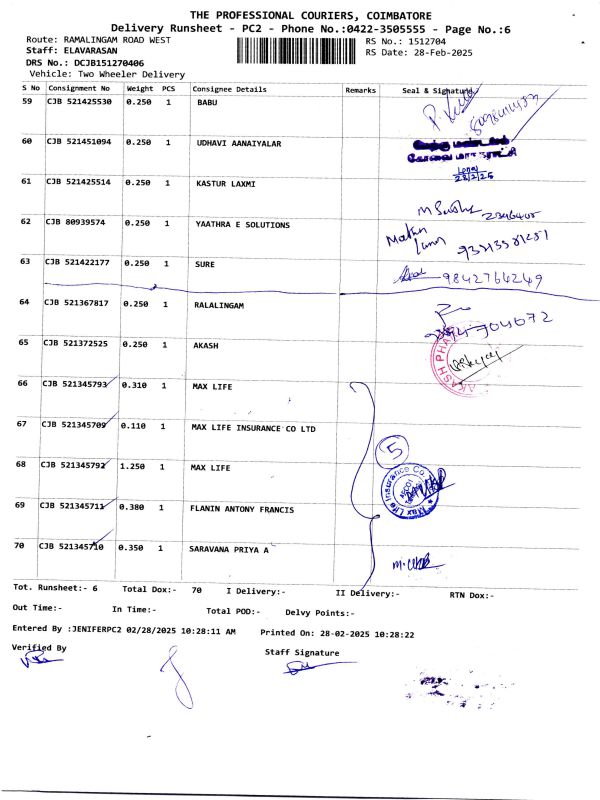 THE PROFESSIONAL COURIERS, COIMBATORE
Delivery Runsheet - PC2 - Phone No.:0422-3505555 - Page No.:6
Route: RAMALINGAM ROAD WEST RS No.: 1512704
Staff: ELAVARASAN RS Date: 28-Feb-2025
DRS No.: DCJB151270406
Vehicle: Two Wheeler Delivery
S No Consignment No Weight PCS Consignee Details Remarks Seal & Signature
59 CJB 521425530 0.250 1 BABU
60 CJB 521451094 0.250 1 UDHAVI AANAIYALAR
கோவை மாநகராட்சி
61 CJB 521425514 0.250 1 KASTUR LAXMI
28/2/25
62 CJB 80939574 0.250 1 YAATHRA E SOLUTIONS
63 CJB 521422177 0.250 1 SURE
9842764249
64 CJB 521367817 0.250 1 RALALINGAM
65 CJB 521372525 0.250 1 AKASH
AKASH PHA
66 CJB 521345793 0.310 1 MAX LIFE
67 CJB 521345709 0.110 1 MAX LIFE INSURANCE CO LTD
5
68 CJB 521345792 1.250 1 MAX LIFE
Max Life Insurance Co.
69 CJB 521345711 0.380 1 FLANIN ANTONY FRANCIS
70 CJB 521345710 0.350 1 SARAVANA PRIYA A
Tot. Runsheet:- 6 Total Dox:- 70 I Delivery:- II Delivery:- RTN Dox:-
Out Time:- In Time:- Total POD:- Delvy Points:-
Entered By :JENIFERPC2 02/28/2025 10:28:11 AM Printed On: 28-02-2025 10:28:22
Verified By Staff Signature